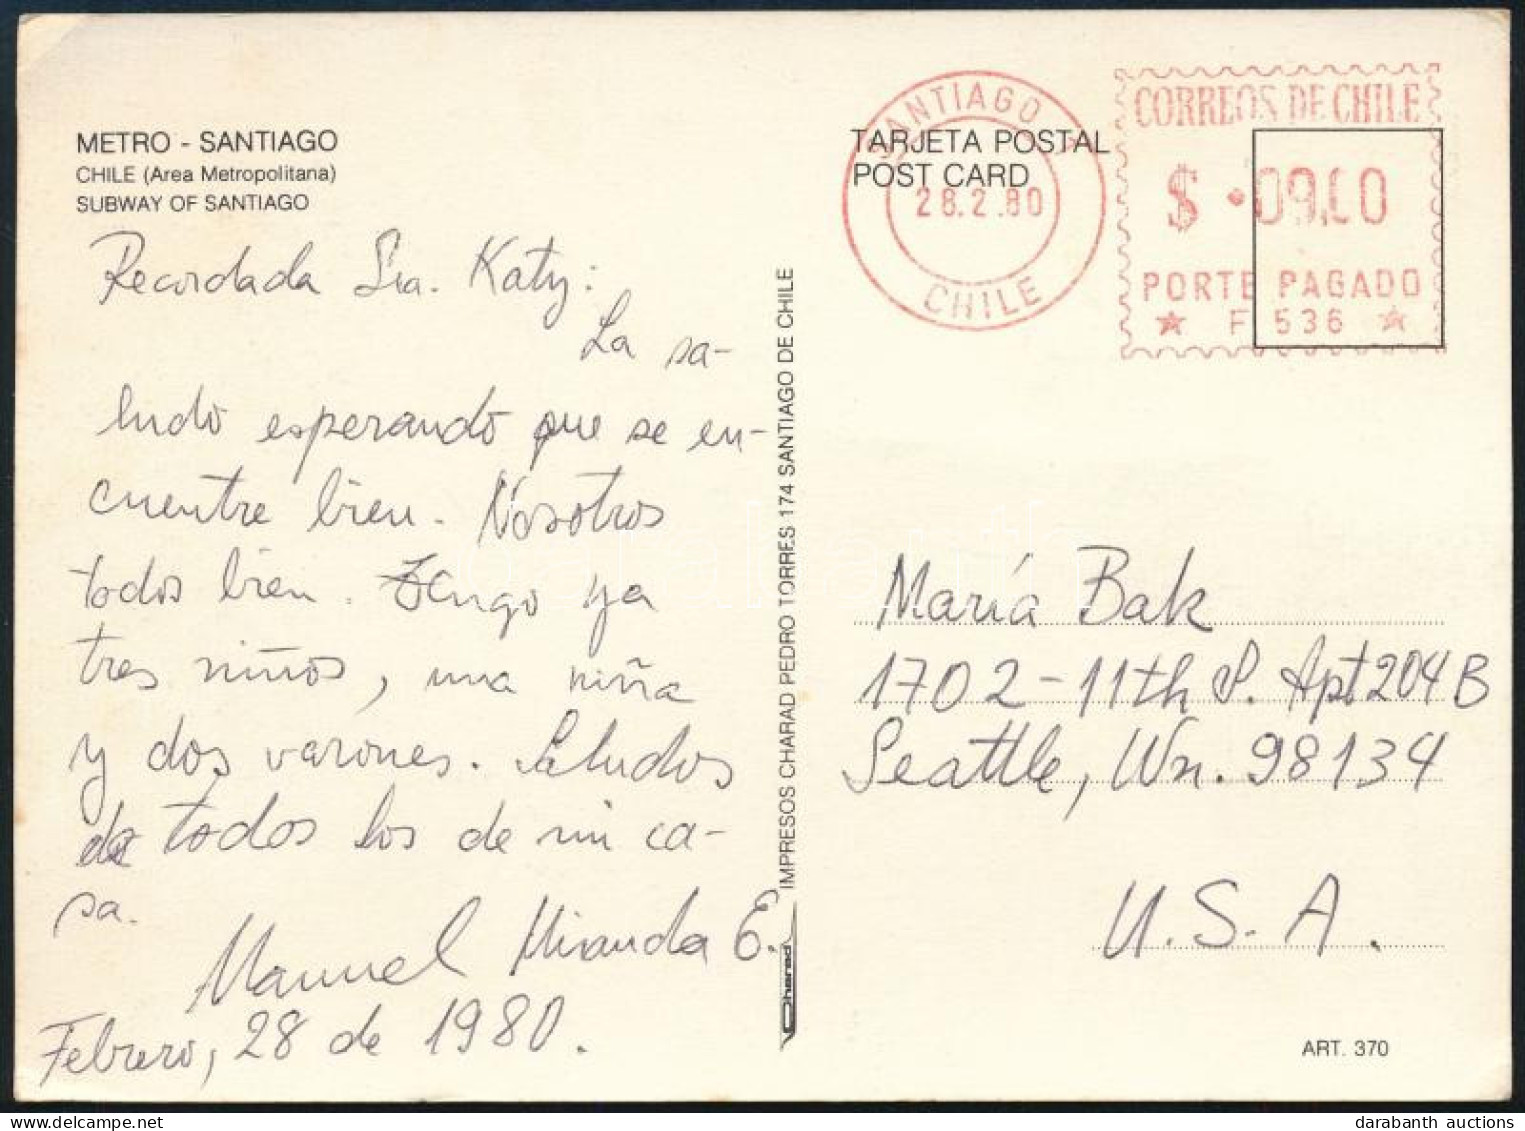 METRO - SANTIAGO
CHILE (Area Metropolitana)
SUBWAY OF SANTIAGO
Recordada Sra. Katy:
La sa-
ludo esperando que se en-
cuentre bien. Nosotros
todos bien. Tengo ya
tres niños, una niña
y dos varones. Saludos
de todos los de mi ca-
sa.
Manuel Miranda E.
Febrero, 28 de 1980.
IMPRESOS CHARAD PEDRO TORRES 174 SANTIAGO DE CHILE
Charad
TARJETA POSTAL
POST CARD
SANTIAGO
28.2.80
CHILE
CORREOS DE CHILE
$ 09,00
PORTE PAGADO
F 536
María Bak
1702-11th S. Apt 204B
Seattle, Wn. 98134
U.S.A.
ART. 370
darabanth auctions